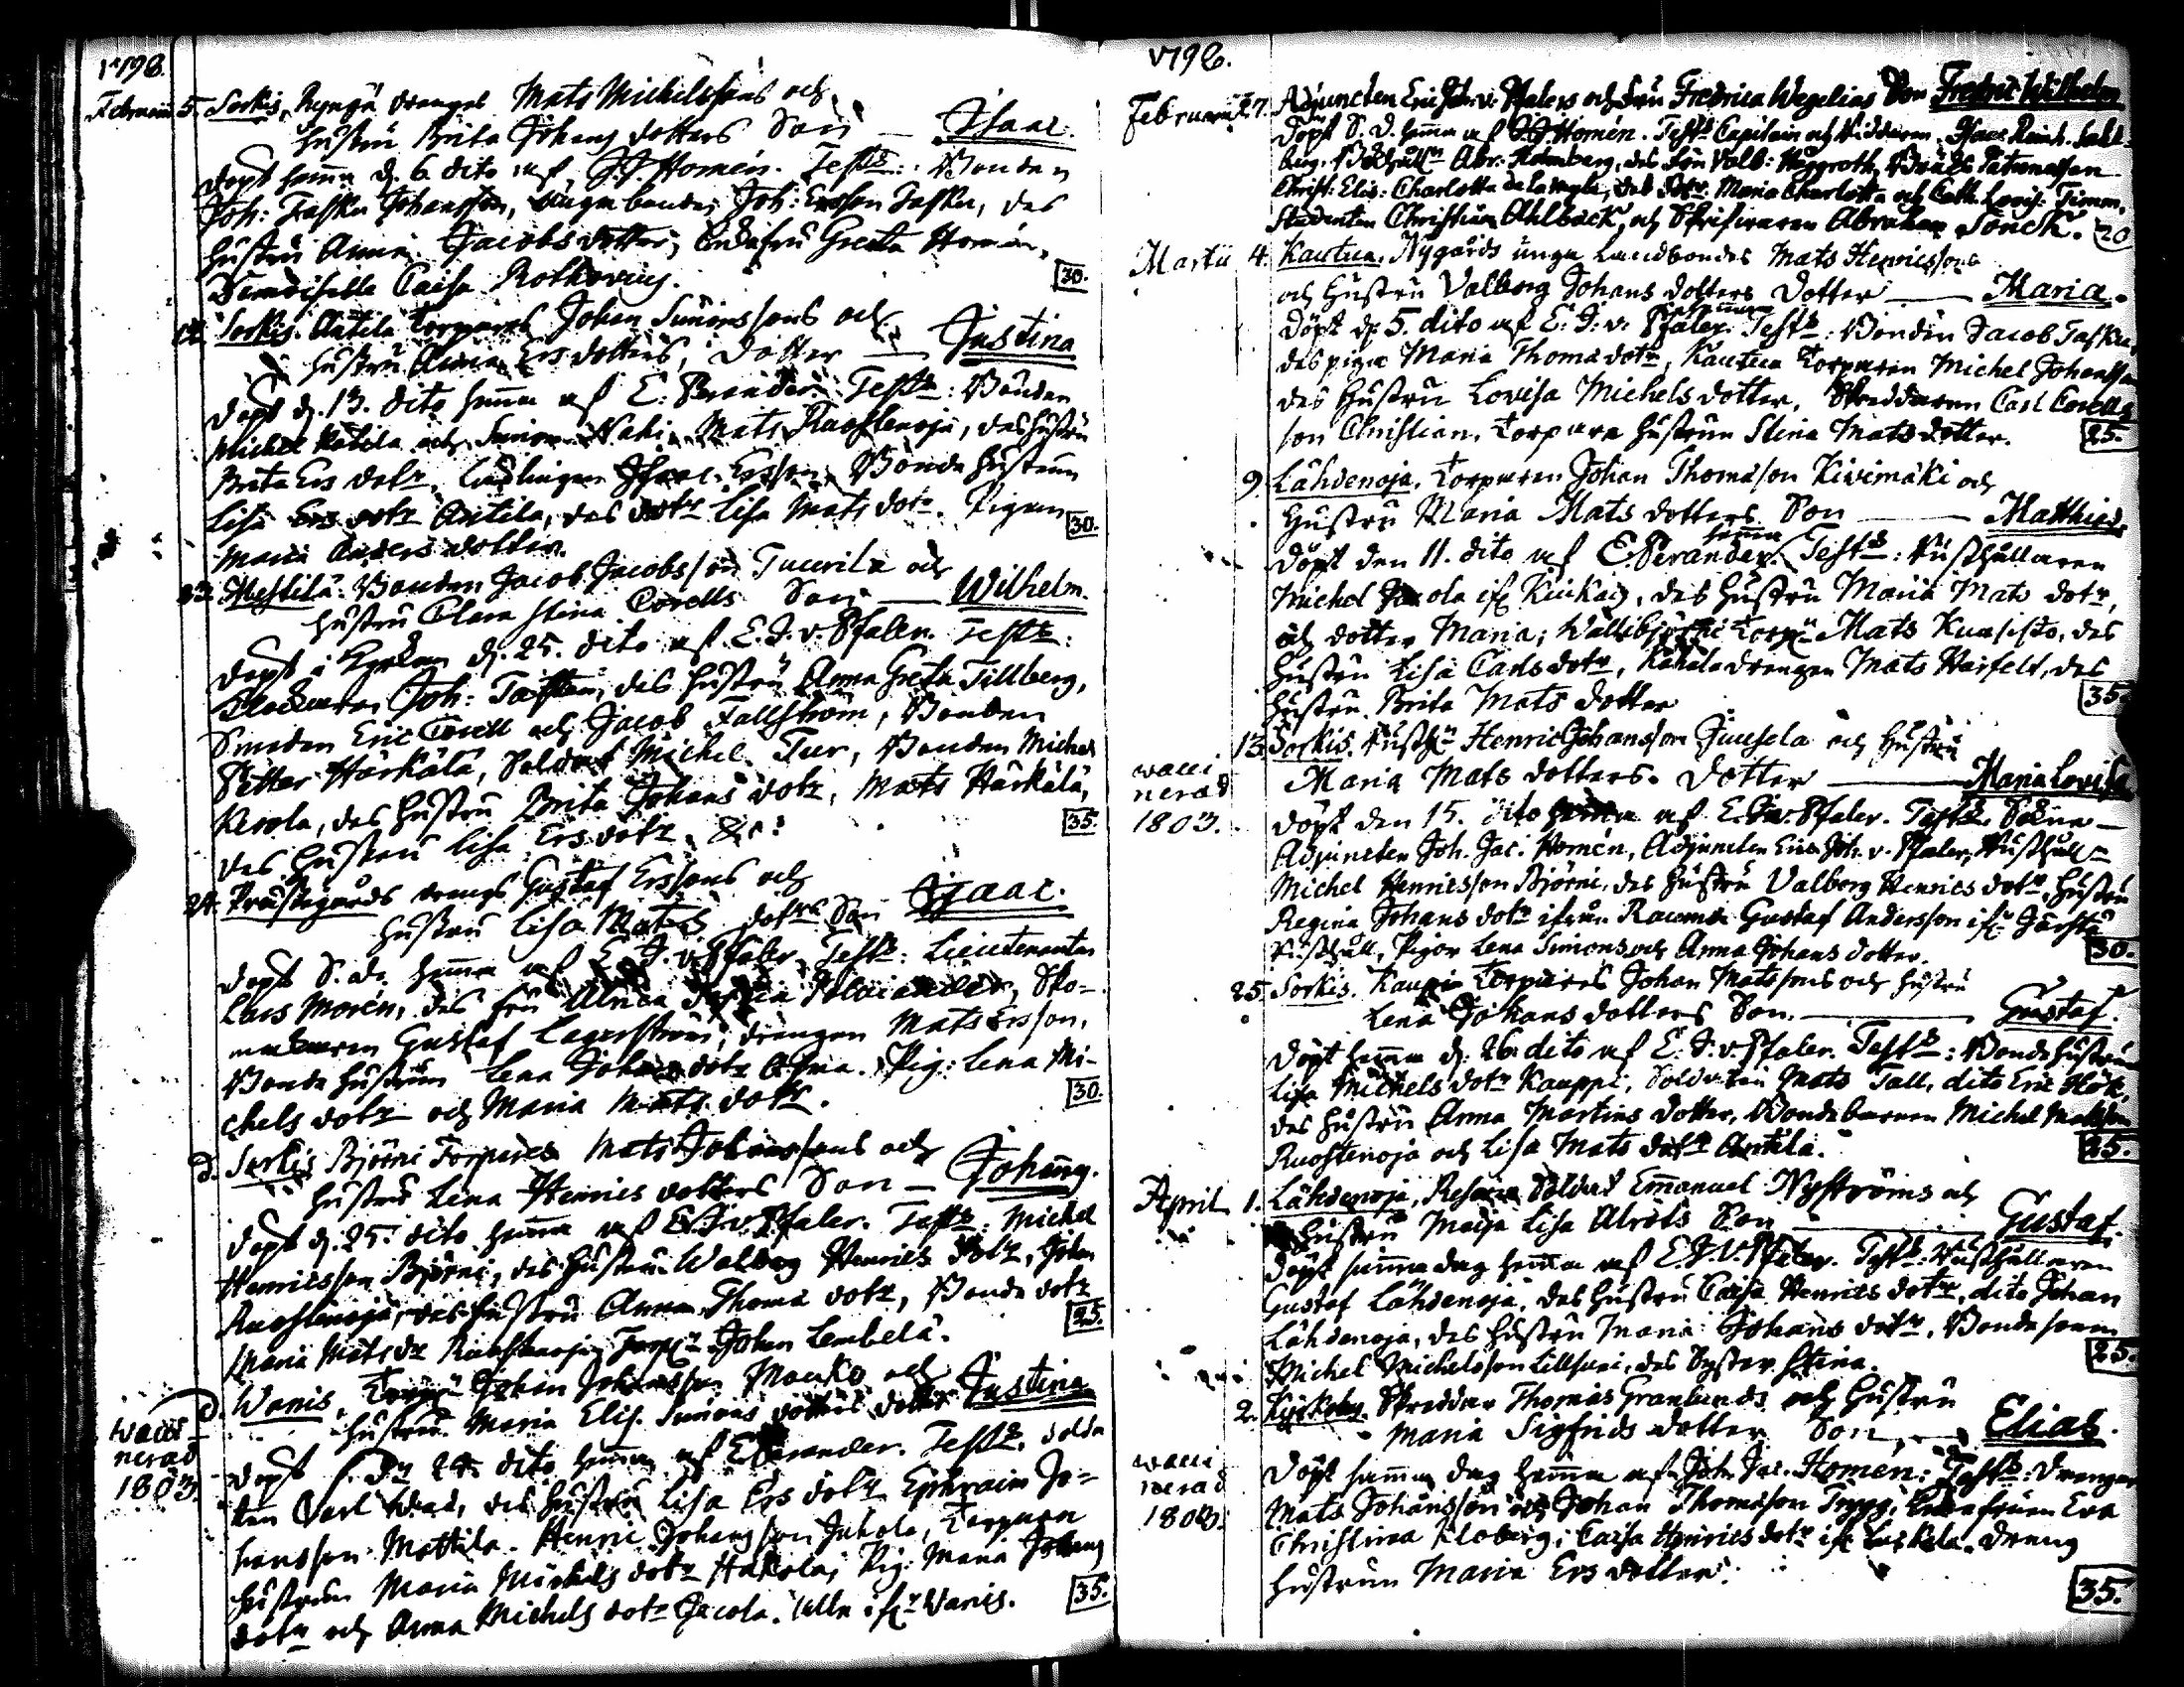 1798.
Februarii 5. Sorkis, Ryngä drengs Mats Michelssons och
hustru Brita Johans dotters Son — Isaac.
döpt hema d. 6. dito af J. J. Homén. Test: Bonden
Joh: Taska Johansson, unga bonden Joh: Ersson Taska, des
hustru Anna Jacobs dotter, Greta Homén,
Demoiselle Caisa Rothovius. 30.
12. Sorkis. Antila Torparens Johan Simonssons och
hustru Anna Ers dotters, dotter — Justina
döpt d. 13. dito hema af E. Perander. Test: Bonden
Michel Katila och Simon Naki, Mats Ruostenoja, des hustru
Brita Ers dotr, Ynglingen Isaac Ersson, Bonde hustrun
Lisa Ers dotr Antila, des dotr Lisa Mats dotr. Pigan 30.
Maria Anders dotter.
23. Mestilä. Bonden Jacob Jacobsson Tuurila och
hustru Clara Stina Corells Son — Wilhelm.
döpt i Kyrkan d. 25. dito af E. J. v. Pfaler. Test:
Klockaren Joh: Tasken, des hustru Anna Greta Tillberg,
Smeden Eric Corell och Jacob Fallström, Bonden
Petter Härkälä, Soldat Michel Tur, Bonden Michel
Kerola, des hustru Brita Johans dotr, Mats Härkälä,
des hustru Lisa Ers dotr &c: 35.
24. Prästegårds drengs Gustaf Erssons och
hustru Lisa Mats dotrs Son Isaac.
döpt S. d. hema af E. J. v. Pfaler. Test: Lieutenanten
Lars Morén, des fru Ulrica Polviander, Sko-
makaren Gustaf Lagerström, drengen Mats Ersson,
Bonde hustrun Lena Johans dotr. Pig: Lena Mi-
chels dotr och Maria Mats dotr. 30.
d. Sorkis Björni Torpares Mats Johanssons och
hustru Lena Henrics dotters Son — Johan.
döpt d. 25. dito hema af E. J. v. Pfaler. Test: Michel
Henricsson Björni, des hustru Walborg Henrics dotr, Johan
Ruostenoja, des hustru Anna Thoma dotr, Bonde dotr
Maria Mats dr Ruostenoja, Torp: Johan Lembelä. 25.
d. Wanis, Torp: Johan Johansson Mouko och
hustru Maria Elis. Simons dotters dotter Justina
wacci-
nerad
1803.
döpt d. 25 dito hema af E. Perander. Test: Solda
ten Carl Wad, des hustru Lisa Ers dotr, Ephraim Jo-
hansson Mattila. Henric Johansson Juhola, Torpare
hustrun Maria Michels dotr Hakola, Pig: Maria Johans
dotr och Anna Michels dotr Jacola. Alla ifr Wanis. 35.
1798.
Februarii 27. Adjuncten Eric Joh: v. Pfalers och fru Fredrica Wegelius Son Fredric Wilhelm
döpt S. d. hema af J. J. Homén. Test: Capitain och Riddaren Hans Reinh. Sahl-
berg. Abr: Holmberg, des fru Valb: Haggroth,
Christ: Elis: Charlotta de la Myle, Maria Charlotta och Cath. Lovis: Timm,
Studenten Christian Ahlbäck, och Skrifvaren Abraham Sonck. 20
Martii 4. Kautua, Nygårds unga Landbondes Mats Henricssons
och hustru Valborg Johans dotters dotter — Maria.
döpt d. 5. dito hemma af E. J. v. Pfaler. Test: Bonden Jacob Taska,
des piga Maria Thoma dotr, Kautua Torparen Michel Johansson
des hustru Lovisa Michels dotter, Skreddaren Carl Corells
son Christian, Torpare hustrun Stina Mats dotter. 25.
9. Lähdenoja, Torparen Johan Thomasson Kivimäki och
hustru Maria Mats dotters Son — Matthias.
döpt den 11. dito hemma af E. Perander. Test: Rusthållaren
Michel Jacola ifr Kuikais, des hustru Maria Mats dotr,
och dotter Maria; Torp: Mats Kuusisto, des
hustru Lisa Carls dotr, drengen Mats Harfelt, des
hustru Brita Mats dotter 35.
13. Sorkis. Rusth: Henric Johansson Juusela och hustru
Maria Mats dotters. dotter — Maria Lovisa
wacci
nerad
1803.
döpt den 15. dito hema af E. J. v. Pfaler. Test: Sokne-
Adjuncten Joh. Jac. Homén, Adjuncten Eric Joh. v. Pfaler, Rusthåll:
Michel Henricsson Björni, des hustru Valborg Henrics dotr, hustru
Regina Johans dotr ifrån Rauma Gustaf Andersson ifr
Rusthåll, Pigor Lena Simons och Anna Johans dotter. 30.
25. Sorkis. Kaupi Torpares Johan Matssons och hustru
Lena Johans dotters Son. — Gustaf.
döpt hema d. 26. dito af E. J. v. Pfaler. Test: Bonde hustrun
Lisa Michels dotr Kauppi, Soldaten Mats Tall, dito Eric Hök,
des hustru Anna Martins dotter, Bonde Michel Matsson
Ruostenoja och Lisa Mats dotr Antila. 25.
April 1. Lähdenoja, Reserve Soldat Emanuel Nyströms och
hustru Maja Lisa Alrots Son — Gustaf.
döpt samma dag hemma af E. J. v. Pfaler. Test: Rusthållaren
Gustaf Lähdenoja, des hustru Caisa Henrics dotr, dito Johan
Lähdenoja, des hustru Maria Johans dotr, Bondesonen
Michel Michelsson Lillsuni, des Syster Stina. 25.
2. Kyrkoby. Skreddar Thomas Granlunds och hustru
Maria Sigfrids dotter Son, — Elias.
wacci
nerad
1803.
döpt samma dag hemma af Joh. Jac. Homén: Test: Drengar
Mats Johansson och Johan Thomasson Trygg, Eva
Christina Kloberg, Caisa Henrics dotr ifr dreng
hustrun Maria Ers dotter. 35.